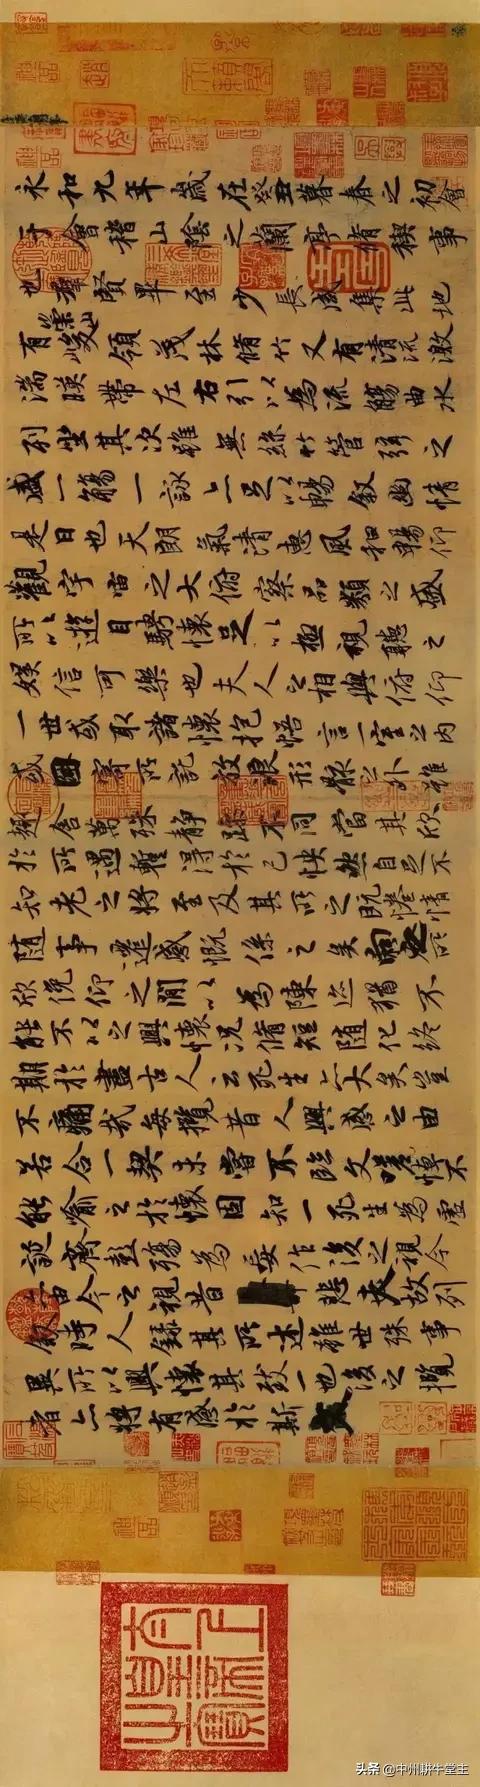 永和九年歲在癸丑暮春之初會
于會稽山陰之蘭亭脩稧事
也羣賢畢至少長咸集此地
有崇山峻領茂林脩竹又有清流激
湍暎帶左右引以為流觴曲水
列坐其次雖無絲竹管弦之
盛一觴一詠亦足以暢叙幽情
是日也天朗氣清惠風和暢仰
觀宇宙之大俯察品類之盛
所以遊目騁懷足以極視聽之
娛信可樂也夫人之相與俯仰
一世或取諸懷抱悟言一室之內
或因寄所託放浪形骸之外雖
趣舍萬殊靜躁不同當其欣
於所遇蹔得於己怏然自足不
知老之將至及其所之既惓情
隨事遷感慨係之矣向之所
欣俛仰之閒以為陳迹猶不
能不以之興懷況脩短隨化終
期於盡古人云死生亦大矣豈
不痛哉每攬昔人興感之由
若合一契未嘗不臨文嗟悼不
能喻之於懷固知一死生為虛
誕齊彭殤為妄作後之視今
亦由今之視昔悲夫故列
叙時人錄其所述雖世殊事
異所以興懷其致一也後之攬
者亦將有感於斯文
头条 @中州耕牛堂主